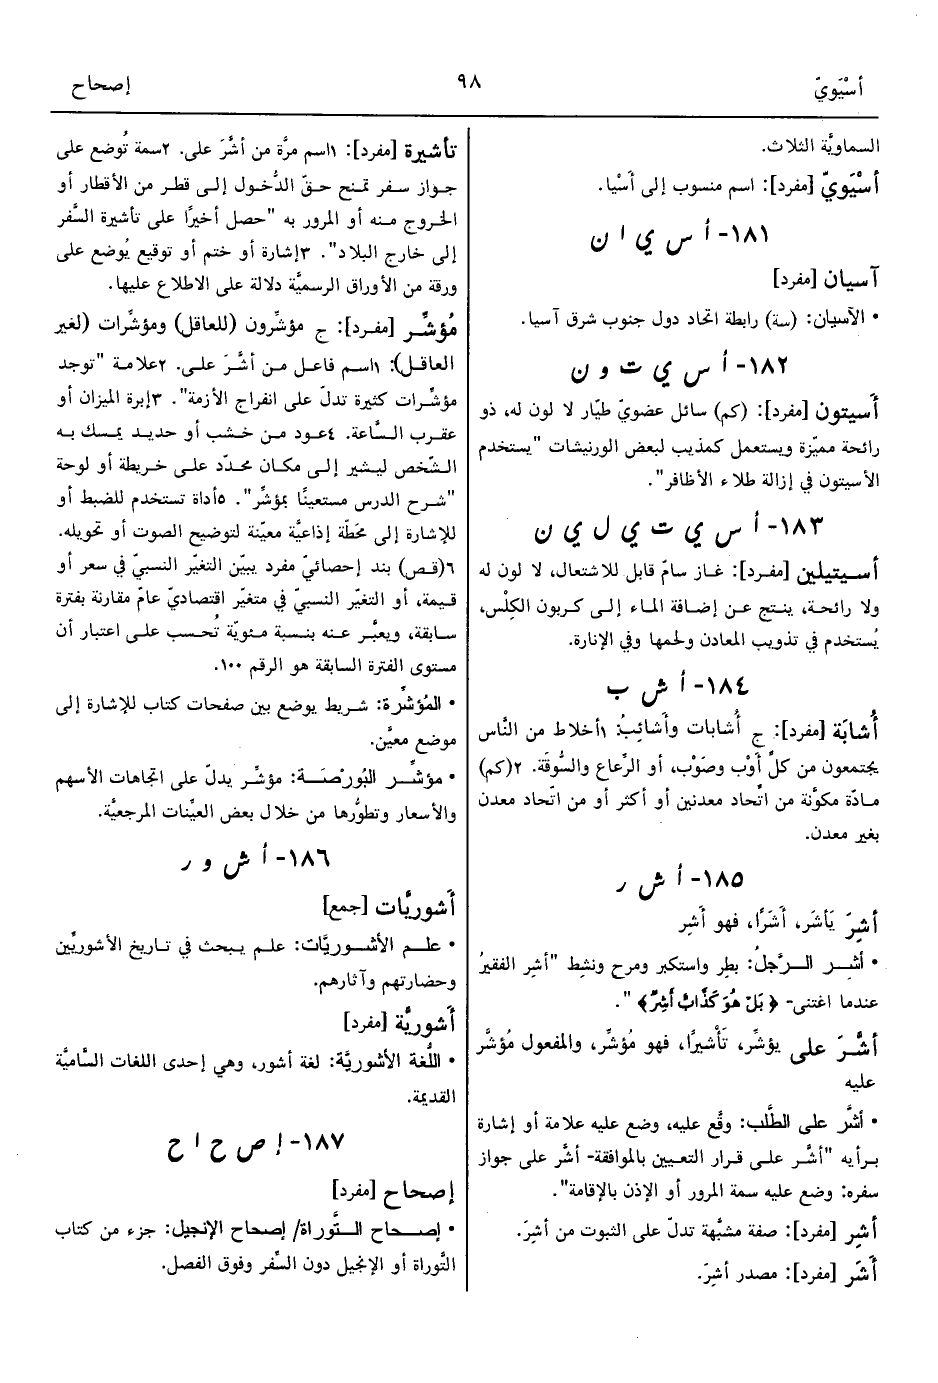 أسْيَويّ
٩٨
إصحاح
السماويَّة الثلاث.
أسْيَويّ [مفرد]: اسم منسوب إلى أسْيا.
١٨١- أ س ي ا ن
آسيان [مفرد]
• الآسيان: (سة) رابطة اتحاد دول جنوب شرق آسيا.
١٨٢- أ س ي ت و ن
أسيتون [مفرد]: (كم) سائل عضويّ طيّار لا لون له، ذو
رائحة مميّزة ويستعمل كمذيب لبعض الورنيشات "يستخدم
الأسيتون في إزالة طلاء الأظافر".
١٨٣- أ س ي ت ي ل ي ن
أسيتيلين [مفرد]: غاز سامّ قابل للاشتعال، لا لون له
ولا رائحة، ينتج عن إضافة الماء إلى كربون الكلْس،
يُستخدم في تذويب المعادن ولحمها وفي الإنارة.
١٨٤- أ ش ب
أُشابَة [مفرد]: ج أُشابات وأشائِبُ: ١أخلاط من النَّاس
يجتمعون من كلِّ أوْب وصَوْب، أو الرِّعاع والسُّوقَة. ٢(كم)
مادّة مكوَّنة من اتِّحاد معدنين أو أكثر أو من اتّحاد معدن
بغير معدن.
١٨٥- أ ش ر
أشِرَ يَأشَر، أشَرًا، فهو أشِر
• أشِر الرَّجلُ: بطِر واستكبر ومرح ونشِط "أشِر الفقيرُ
عندما اغتنى- ﴿بَلْ هُوَ كَذَّابٌ أَشِرٌ﴾".
أشَّرَ على يؤشِّر، تَأْشيرًا، فهو مُؤشِّر، والمفعول مُؤشَّر
عليه
• أشَّر على الطَّلب: وقَّع عليه، وضع عليه علامة أو إشارة
برأيه "أشَّر على قرار التعيين بالموافقة- أشَّر على جواز
سفره: وضع عليه سمة المرور أو الإذن بالإقامة".
أشِر [مفرد]: صفة مشبَّهة تدلّ على الثبوت من أشِرَ.
أشَر [مفرد]: مصدر أشِرَ.
تأشيرة [مفرد]: ١اسم مرَّة من أشَّرَ على. ٢سمة تُوضع على
جواز سفر تمنح حقّ الدُّخول إلى قطر من الأقطار أو
الخروج منه أو المرور به "حصل أخيرًا على تأشيرة السَّفر
إلى خارج البلاد". ٣إشارة أو ختم أو توقيع يُوضع على
ورقة من الأوراق الرسميَّة دلالة على الاطلاع عليها.
مُؤشِّر [مفرد]: ج مؤشِّرون (للعاقل) ومؤشِّرات (لغير
العاقل): ١اسم فاعل من أشَّرَ على. ٢علامة "توجد
مؤشِّرات كثيرة تدلّ على انفراج الأزمة". ٣إبرة الميزان أو
عقرب السَّاعة. ٤عود من خشب أو حديد يمسك به
الشّخص ليشير إلى مكان محدّد على خريطة أو لوحة
"شرح الدرس مستعينًا بمؤشِّر". ٥أداة تستخدم للضبط أو
للإشارة إلى محَطّة إذاعيَّة معيّنة لتوضيح الصوت أو تحويله.
٦(قص) بند إحصائيّ مفرد يبيّن التغيّر النسبيّ في سعر أو
قيمة، أو التغيّر النسبيّ في متغير اقتصاديّ عامّ مقارنة بفترة
سابقة، ويعبَّر عنه بنسبة مئويّة تُحسب على اعتبار أن
مستوى الفترة السابقة هو الرقم ١٠٠.
• المُؤشِّرة: شريط يوضع بين صفحات كتاب للإشارة إلى
موضع معيَّن.
• مؤشِّر البُورْصَة: مؤشِّر يدلّ على اتجاهات الأسهم
والأسعار وتطوُّرها من خلال بعض العيِّنات المرجعيَّة.
١٨٦- أ ش و ر
أشوريَّات [جمع]
• علم الأشوريَّات: علم يبحث في تاريخ الأشوريِّين
وحضارتهم وآثارهم.
أشوريَّة [مفرد]
• اللُّغة الأشوريَّة: لغة أشور، وهي إحدى اللغات السَّاميَّة
القديمة.
١٨٧- إ ص ح ا ح
إصحاح [مفرد]
• إصحاح التَّوراة/ إصحاح الإنجيل: جزء من كتاب
التَّوراة أو الإنجيل دون السِّفر وفوق الفصل.